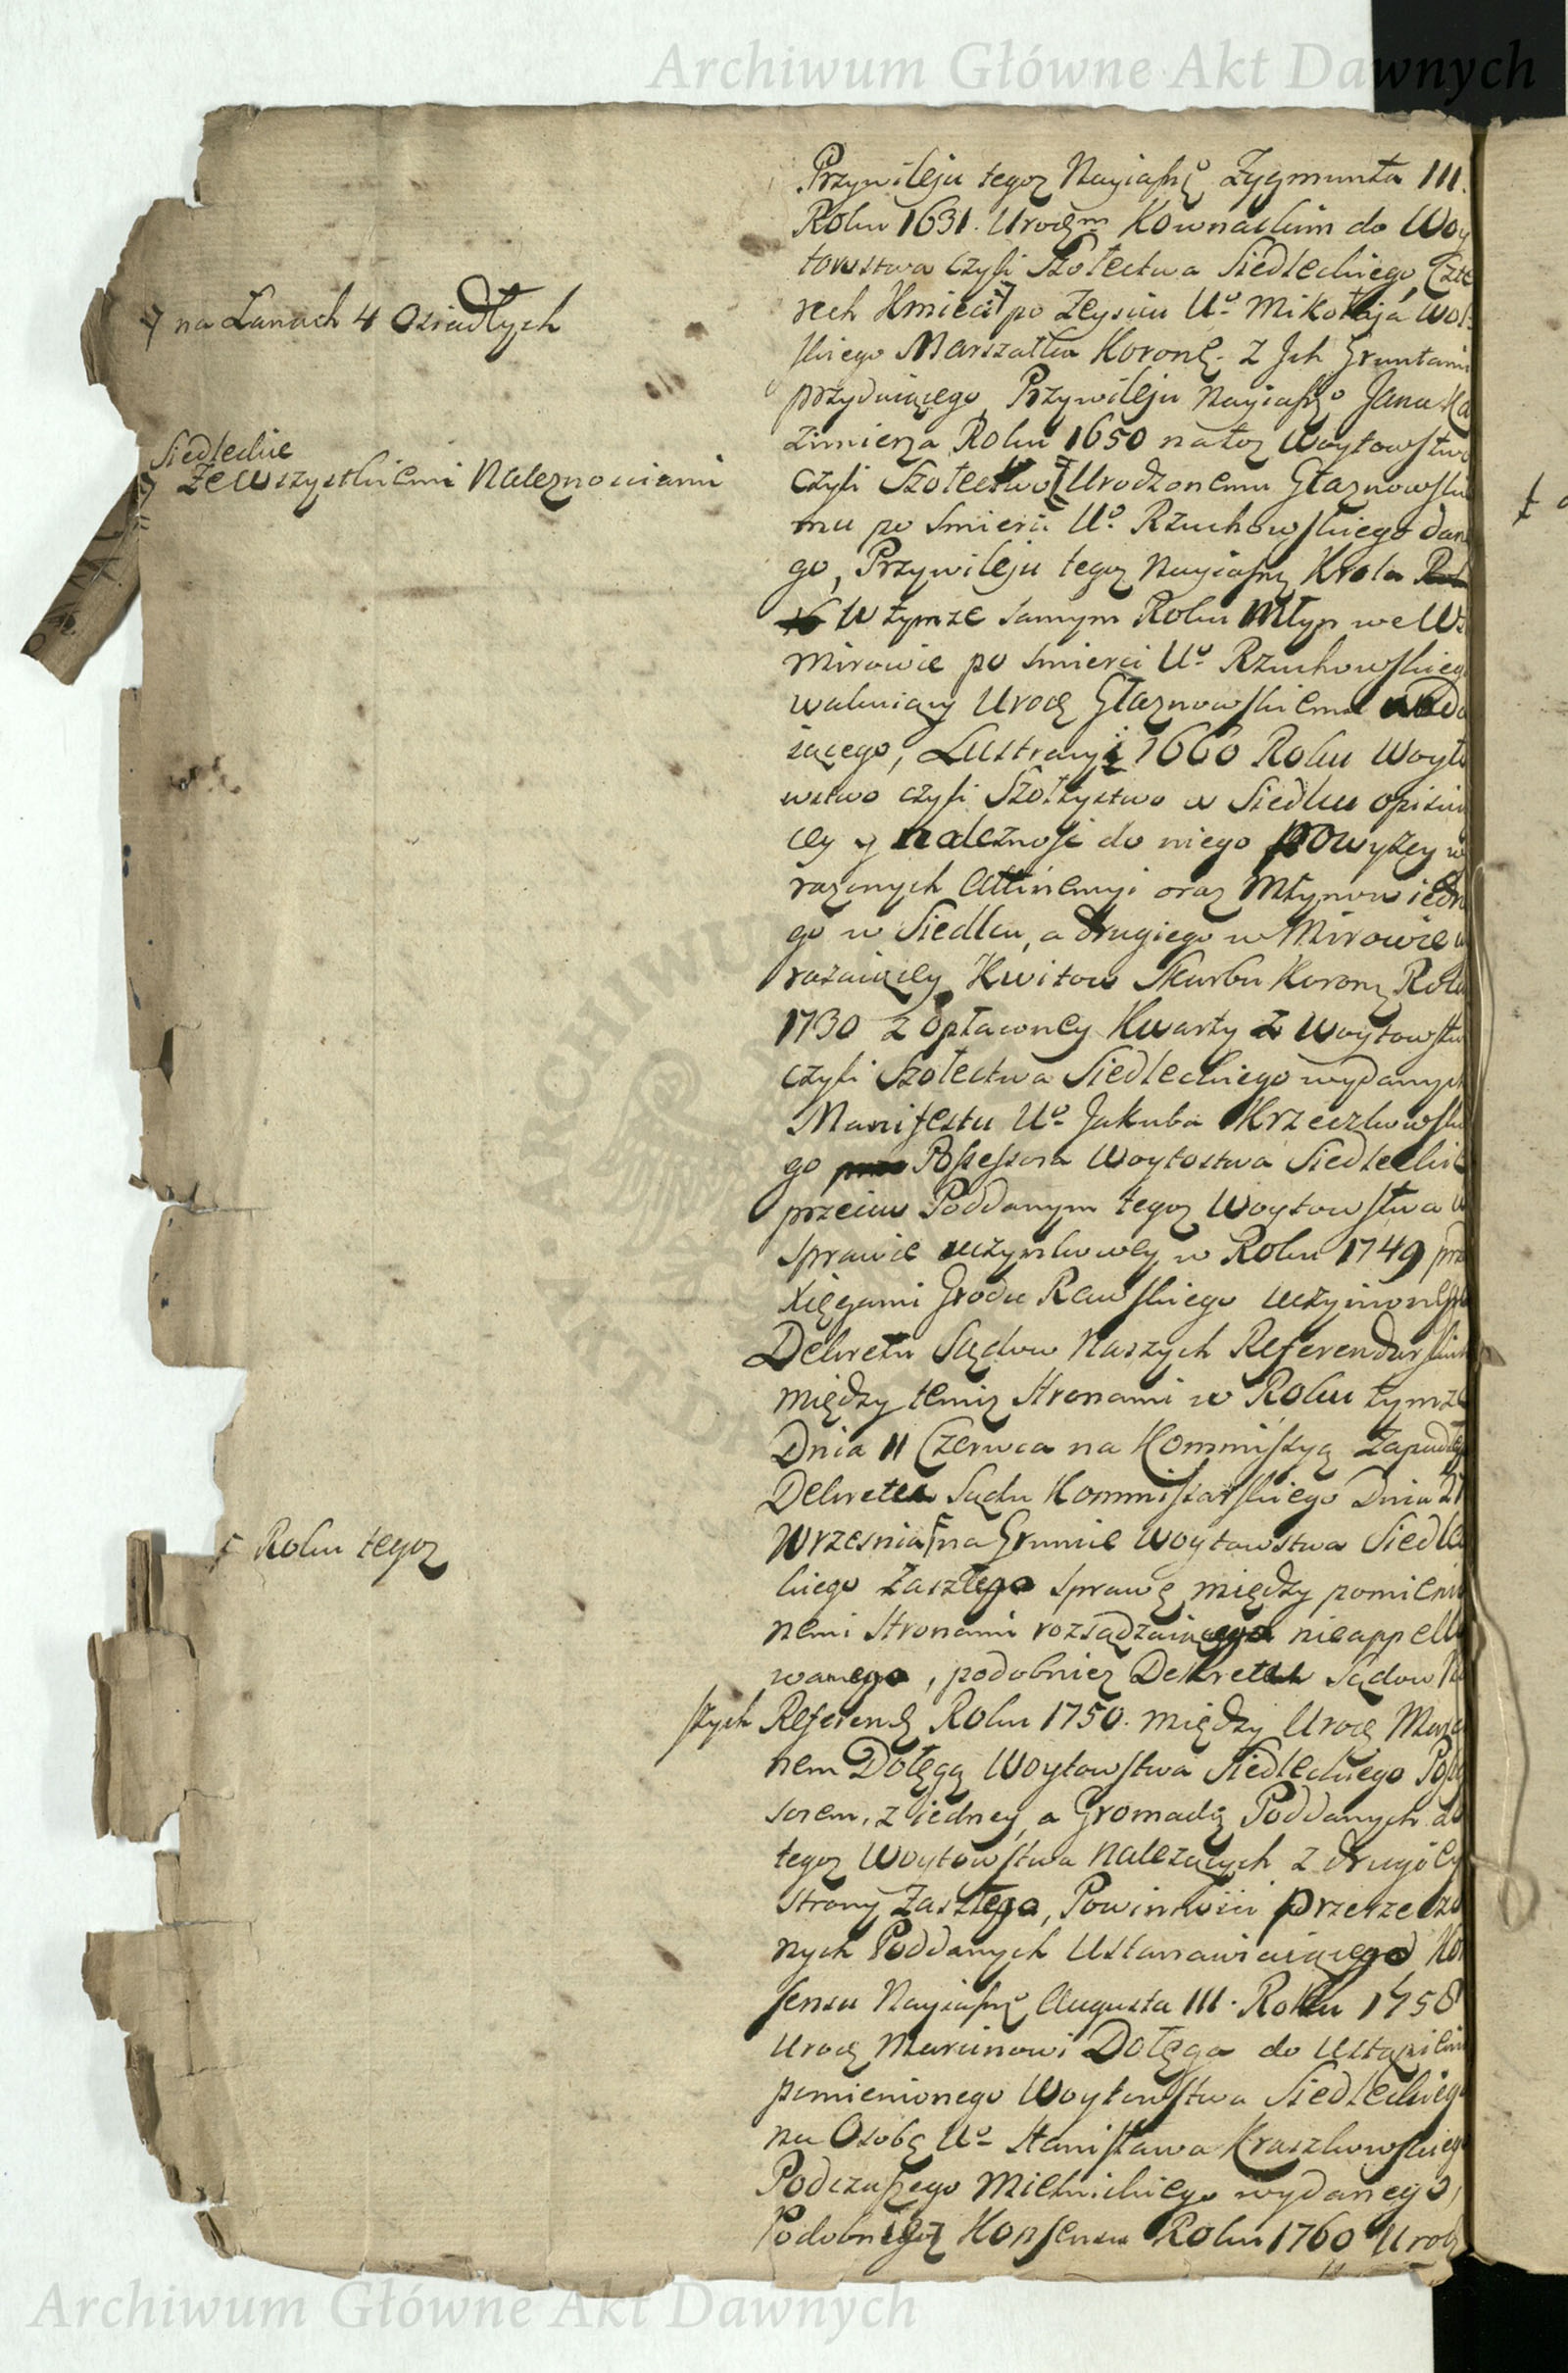 Archiwum Główne Akt Dawnych
Przywileju tegoz Nayiaśnę Zygmunta III.
Roku 1631. Urodzm Kownackim do Woy
towstwa czyli Szołectwa Siedleckiego Czte
na Łanach 4 Osiadłych
rech Kmieci po Zeyściu Uo Mikołaja Wol
skiego Marszałka Koronę. z Jch Gruntami
przydaiącego, Przywileju Nayiaśgo Jana Ka
zimierza Roku 1650 na toz Woytowstwo
Siedleckie
ze wszystkiemi Naleznościami
czyli Szołectwo Urodzonemu Głaznowski
mu po smierci Uo Rzuchowskiego dan
go, Przywileju tegoz Nayiasnę Krola
W tymze samym Roku Młyn we W
mirowie po smierci Uo Rzuchowskieg
wakuiący Urodę Głaznowskiemu nada
iącego, Lustracyi 1660 Roku Woyto
wstwo czyli Szołtystwo w Siedlcu opisui
cey y nalezność do niego powyzey w
razonych Attinencyi oraz Młynow iedn
go w Siedlcu, a drugiego w Mirowie w
razaiącey Kwitow Skarbu Koronę Roku
1730 z opłaconey Kwarty z Woytowstw
czyli Szołectwa Siedleckiego wydanych
Manifestu Uo Jakuba Krzeczkowski
go Possessora Woytostwa Siedleckie
przeciw Poddanym tegoz Woytowstwa w
sprawie uczynkowey w Roku 1749 prz
Xięgami Grodu Rawskiego uczynione
Dekretu Sądow Naszych Referendarskich
między temiz Stronami w Roku tymze
Dnia 11 Czerwca na Kommissyą Zapad
Dekretu Sądu Kommissarskiego Dnia 27
Roku tegoz
Wrzesnia na Gruncie Woytowstwa Siedle
kiego Zaszłego sprawę między pomieni
nemi Stronami rozsądzaiącego nieappello
wanego, podobniez Dekretu Sądow Na
szych Referendę Roku 1750. między Urodę Marci
nem Dołęgą Woytowstwa Siedleckiego Poss
sorem, z iedney, a Gromadą Poddanych do
tegoz Woytowstwa nalezących z drugiey
strony Zaszłego, Powinności przerzeczo
nych Poddanych Ustanawiaiącego Kon
sensu Nayiaśnę Augusta III. Roku 1758
Urodę Marcinowi Dołęga do Ustąpieni
pomienionego Woytowstwa Siedleckiego
na Osobę Uo Stanisława Kraszkowskieg
Podczaszego Mielnickiego wydanego,
Podobniegoz Konsensu Roku 1760 Urodz
Archiwum Główne Akt Dawnych